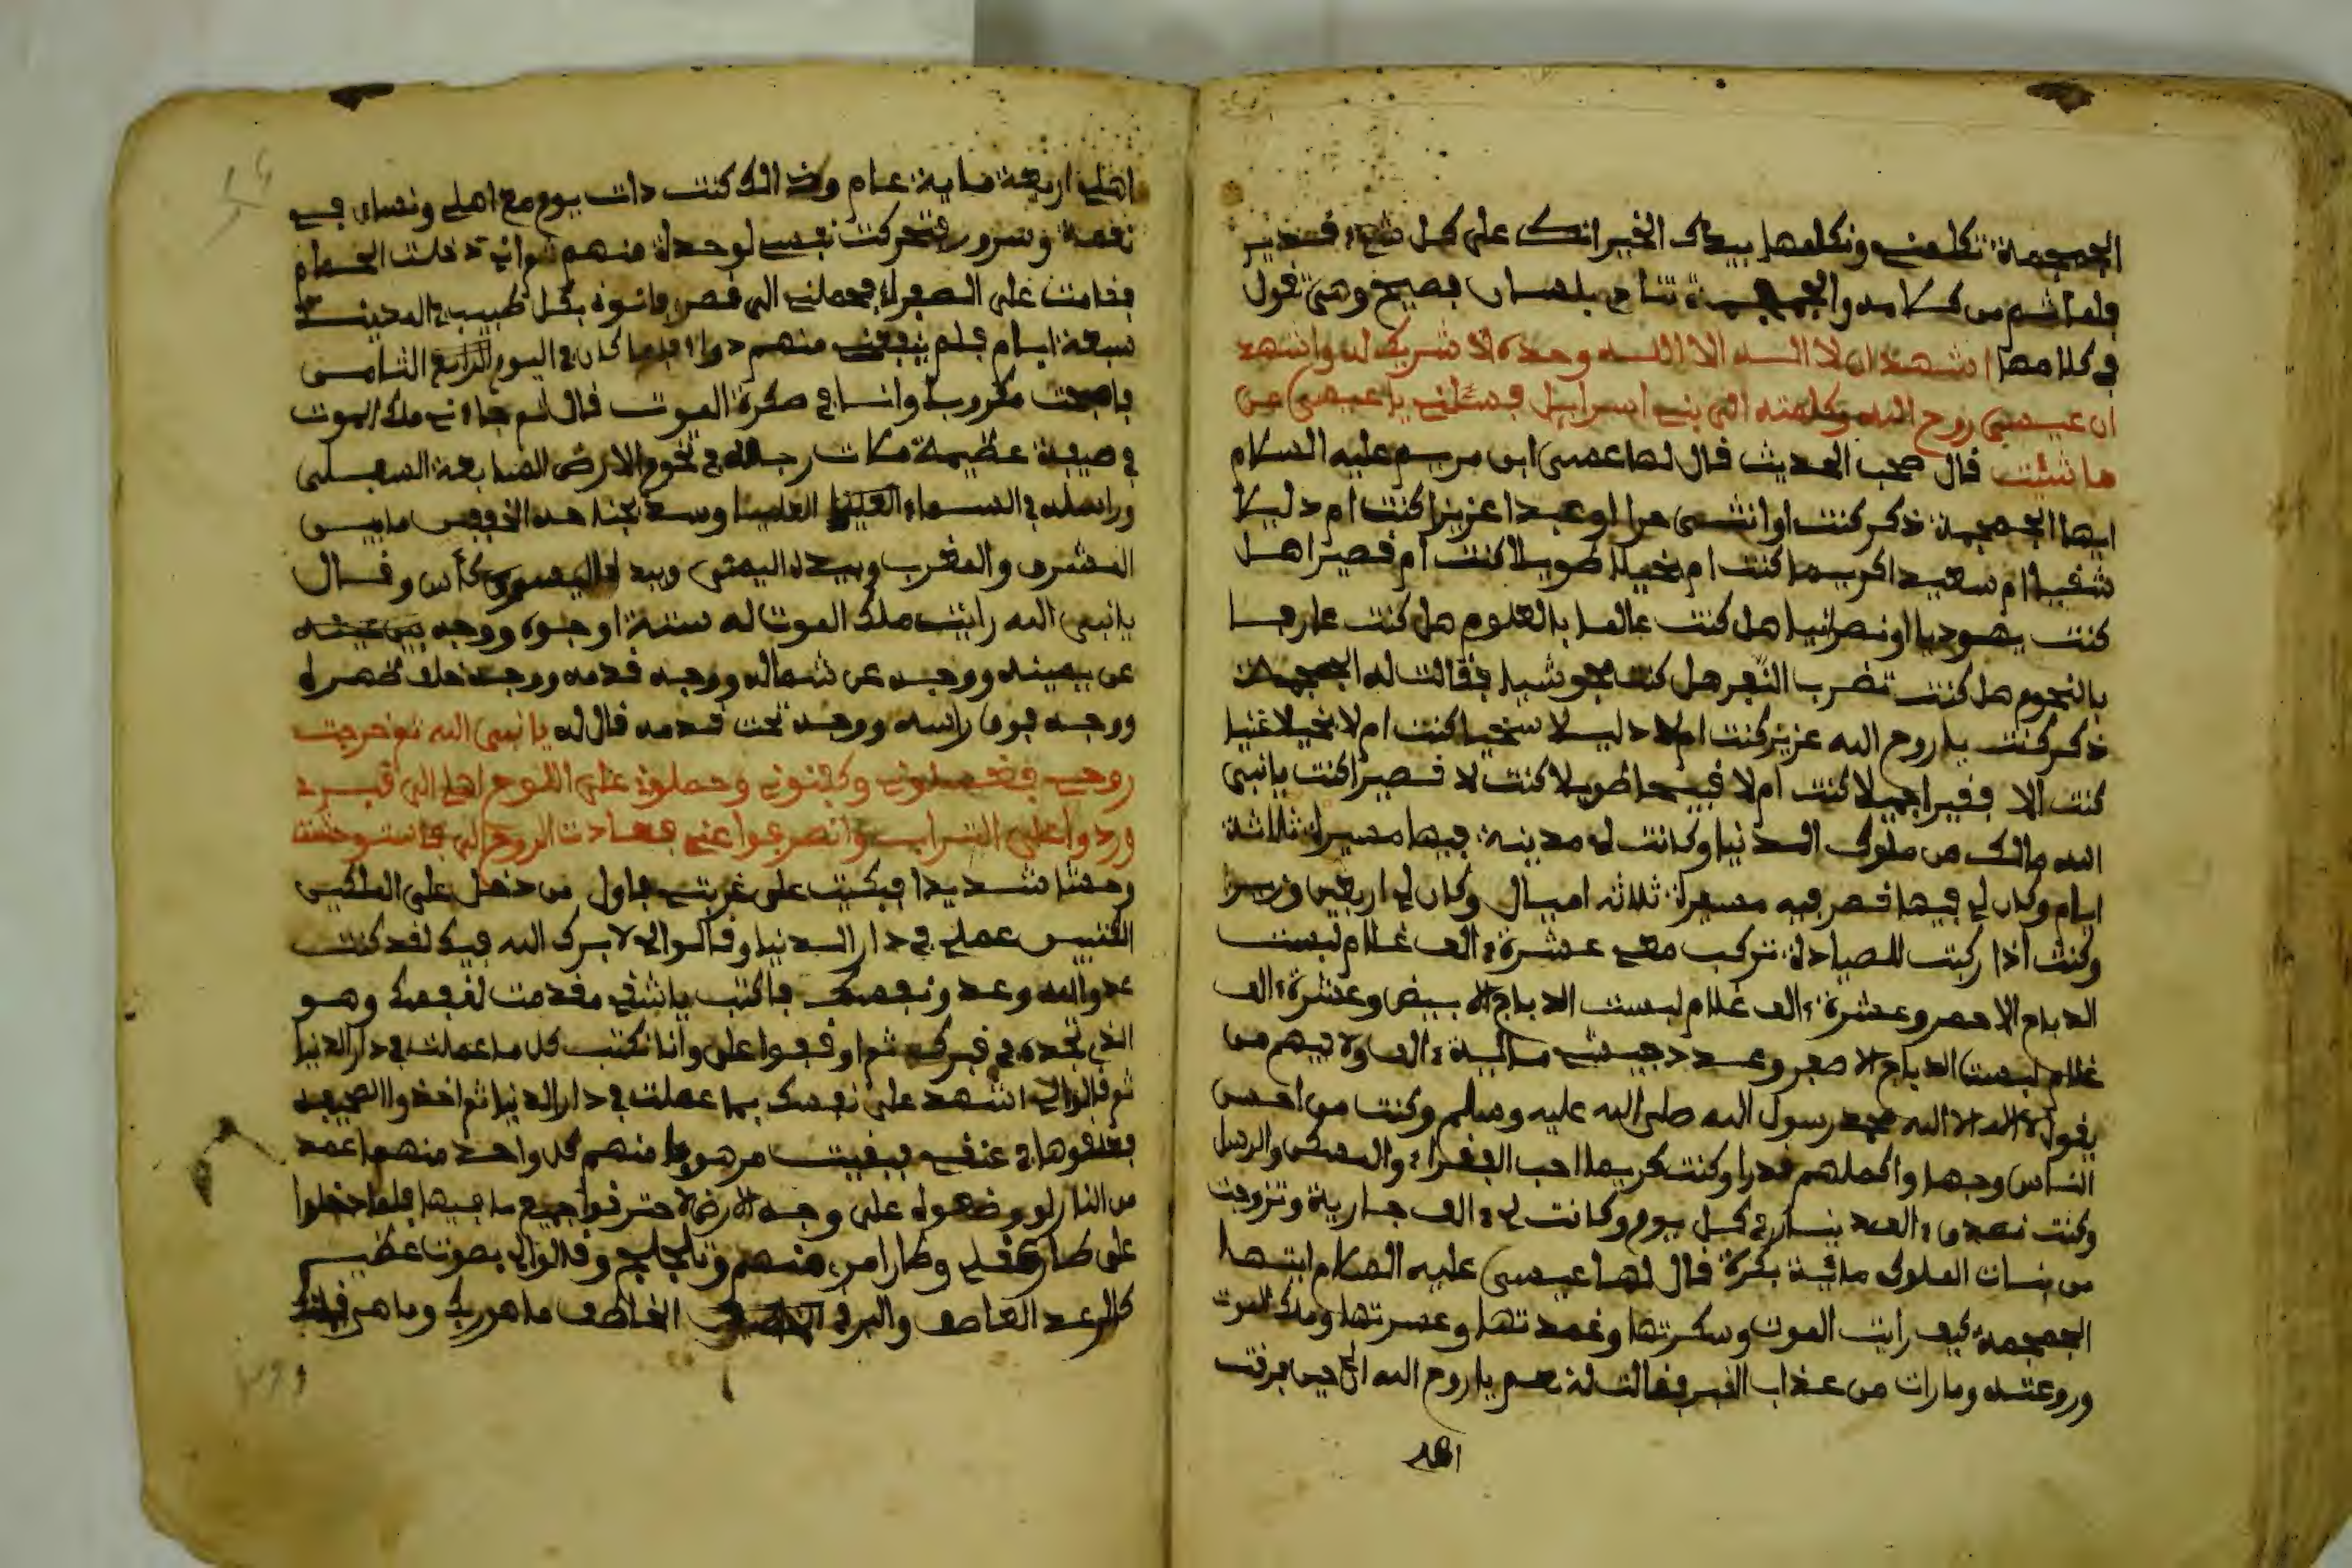 الجمجمة تكلمني ونكلمها بيدك الخير انك على كل شيء قدير
فلما اتم من كلامه والجمجمة تنادي بلسان فصيح وهي تقول
في كلامها اشهد ان لا اله الا الله وحده لا شريك له واشهد
ان عيسى روح الله وكلمته الى بني اسرايل فسئلني يا عيسى عن
ما شئت قال صحب الحديث قال لها عيسى ابن مريم عليه السلام
ايها الجمجمة ذكر كنت او انثى حرا او عبدا عزيزا كنت ام دليلا
شقيا ام سعيدا كريما كنت ام بخيلا طويلا كنت ام قصيرا هل
كنت يهوديا او نصرانيا هل كنت عالما بالعلوم هل كنت عارفا
بالنجوم هل كنت تضرب هل كنت مجوشيا فقالت له الجمجمة
ذكر كنت يا روح الله عزيز كنت ام لا دليلا سخيا كنت ام لا بخيلا غنيا
كنت الا فقيرا جميلا كنت ام لا قبيحا طويلا كنت لا قصيرا كنت يا نبي
الله مالك من ملوك الدنيا وكانت لي مدينة فيها مسيرة ثلاثة
ايام وكان لي فيها قصر فيه مسيرة ثلاثة اميال وكان لي اربعين وزيرا
وكنت اذا ركبت للصيادة تركب معي عشرة الف غلام لبست
الدباج الاحمر وعشرة الف غلام لبست الدباج الابيض وعشرة الف
غلام لبست الدباج الاصفر وعدد جيشي مالية الف ولا فيهم من
يقول لا اله الا الله محمد رسول الله صلى الله عليه وسلم وكنت من احسن
الناس وجها واكملهم قدرا وكنت كريما احب الفقراء والمسكن والرسل
وكنت نصدق الف دينار في كل يوم وكانت لي الف جارية وتزوجت
من بنات الملوك ماية بكرة قال لها عيسى عليه السلام ايتها
الجمجمة كيف رايت الموت وسكرتها وغمدتها وعسرتها وملك الموت
وروعته وما رات من عذاب القبر فقالت له نعم يا روح الله اني حين فرقت
اهلي
اهلي اربعة ماية عام وذالك كنت ذات يوم مع اهلي ونساي في
نعمة وسرور فتحركت نفسي لوحدة منهم ثم اني دخلت الحمام
فقامت على الصفراء فحملني الى قصر فاتوه بكل طبيب في المدينة
سبعة ايام فلم ينفعني منهم دواء فلما كان في اليوم الرابع الثامن
فاصبحت مكروبا وانا في صكرة الموت قال ثم جاءني ملك الموت
في صيفة عظيمة مكات رجله في تخوم الارض السابعة السفلى
وراسه في السماء العليا العليا وسد بجناحه الخفقين ما بين
المشرق والمغرب وبيده اليمنى وبيده اليسرى كأس وقال
يا نبي الله رايت ملك الموت له ستة اوجوه ووجه بين عينيه
عن يمينه ووجه عن شماله ووجه قدمه ووجه خلف ظهره
ووجه فوق راسه ووجه تحت قدمه قال له يا نبي الله ثم خرجت
روحي فغسلوني وكفنوني وحملوني على اللوح اهلي الى قبري
وردوا على التراب وانصرفوا عني فعادت الروح لي فاستوحشت
وحشا شديدا فبكيت على غربتي فاول من دخل على الملكين
الكتبين عملي في دار الدنيا وقالوا لي لا برك الله فيك لقد كنت
عدو الله وعدو نفسك فاكتب يا شقي ما قدمت لنفسك وهو
الذي تجده في قبرك ثم اوقفوا علي وانا نكتب كل ما عملت في دار الدنيا
ثم قالوا لي اشهد على نفسك بما عملت في دار الدنيا ثم اخذوا الصحيفة
فعلقوها في عنقي فبقيت مرهوبا منهم كل واحد منهم عمد
من النار لو وضعوه على وجه الارض لاحترقوا جميع ما فيها فلما دخلوا
على طار عقلي وطارا من منهم وتلجلج وقالوا لي بصوت عظيم
كالرعد القاصف والبرق الخاطف ما هو ربك وما هي قبلتك